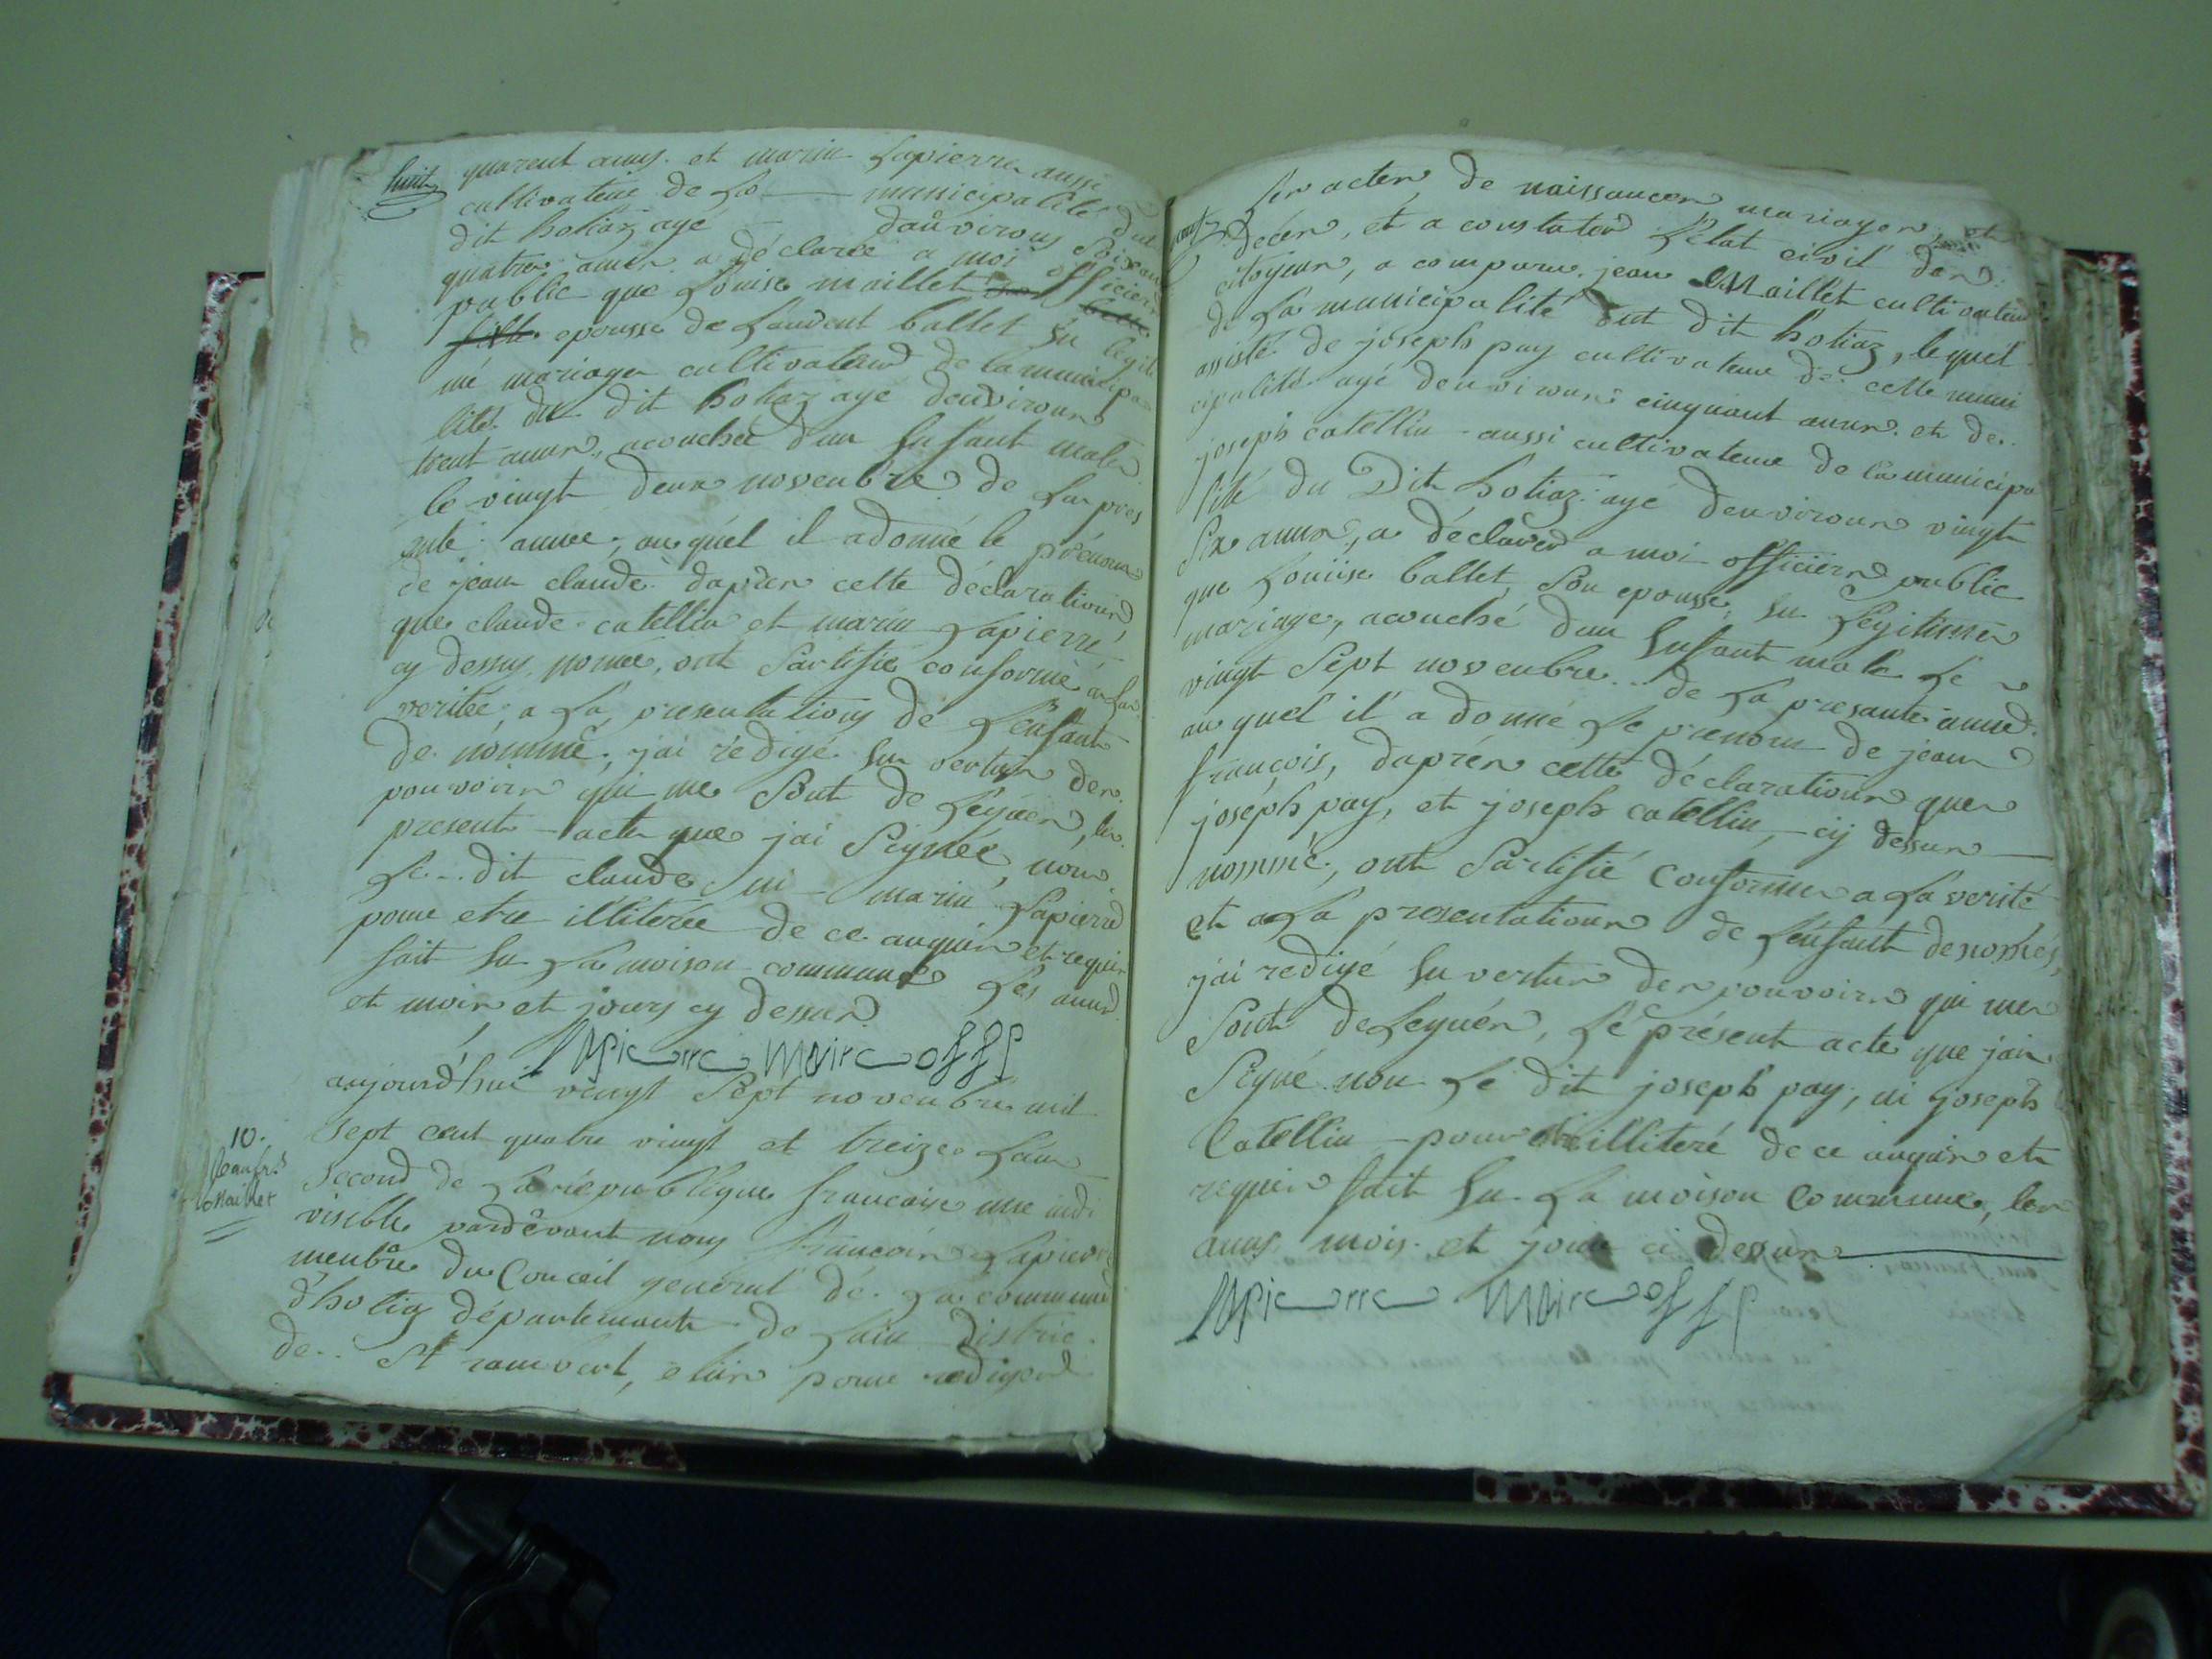 huit
quarent anns. et marin Lapierre aussi
cultivateur de La municipalité du
dit hotiaz agé danvirons Soixant
quatre annee a déclaree a moi officier
public que Louise maillet
fille epousse de Laudent ballet Su legit
mé mariage cultivateur de la municipa
lité du dit hotiaz agé denvirouns
trent anns, acouchee d'un Enfant male
le vingt deux novenbre de La pres
ente année, au quél il adonné le prénom
de jean claude dapres cette déclaration
que claude catellin et marin Lapierre
cy dessus nomée, ont Sartifié conforme a La
veritée, a La presentations de L'enfant
de nommé, jai rédigé Su vertus des
pouvoirs qui me Sont de Leguér, le
present acte que jai Signéé, non
Le dit claude ni marin Lapierre
pour etre illiterée de ce anquis et requis
fait Su La maison commune Les anns
et mois et jours cy dessus
Lapierre Maire offp
10.
Jean fr.s
Maillet
aujourd'hui vingt Sept novenbre mil
Sept cent quatre vingt et treize Lan
second de La république francaise une indi
visible pardévant nous francois Lapierre
menbre du Conceil général dé La commune
d'hotiaz département de Lain distric
de St rambert, elus pour rediger
les actes de naissances mariages, et
décés, et a constater L'état civil des
citoyens, a comparu jean Maillet cultivateur
de La municipalité dut dit hotiaz, lequel
assisté de joseph pay cultivateur de cette muni
cipalité agé denvirouns cinquant anns. et de
joseph catellin aussi cultivateur de la municipa
lité du Dit hotiaz agé denvirouns vingt
Six anns, a déclarer a moi officiér public
que Louiise ballet Son epousse, Su Legitime
mariage, acouché dun Enfant male Le
vingt Sept novenbre de La presante année
au quel il a donné Le prenom de jean
francois, daprés cette déclaratioun que
joséph pay, et joseph catellin, cij dessus
nommé, ont Sartifié Conforme a La verité
et a La presentatioun de L'énfant denomés,
j'ai redigé Su vertus des pouvoirs qui me
Sont de Leguér, Lé présent acte que jai
Signé non Le dit joseph pay, ni joseph
Catellin pour etre illiteré de ce anquis et
requis fait Su La maison Commune, les
anns mois et jour ci dessus
Lapierre Maire offp